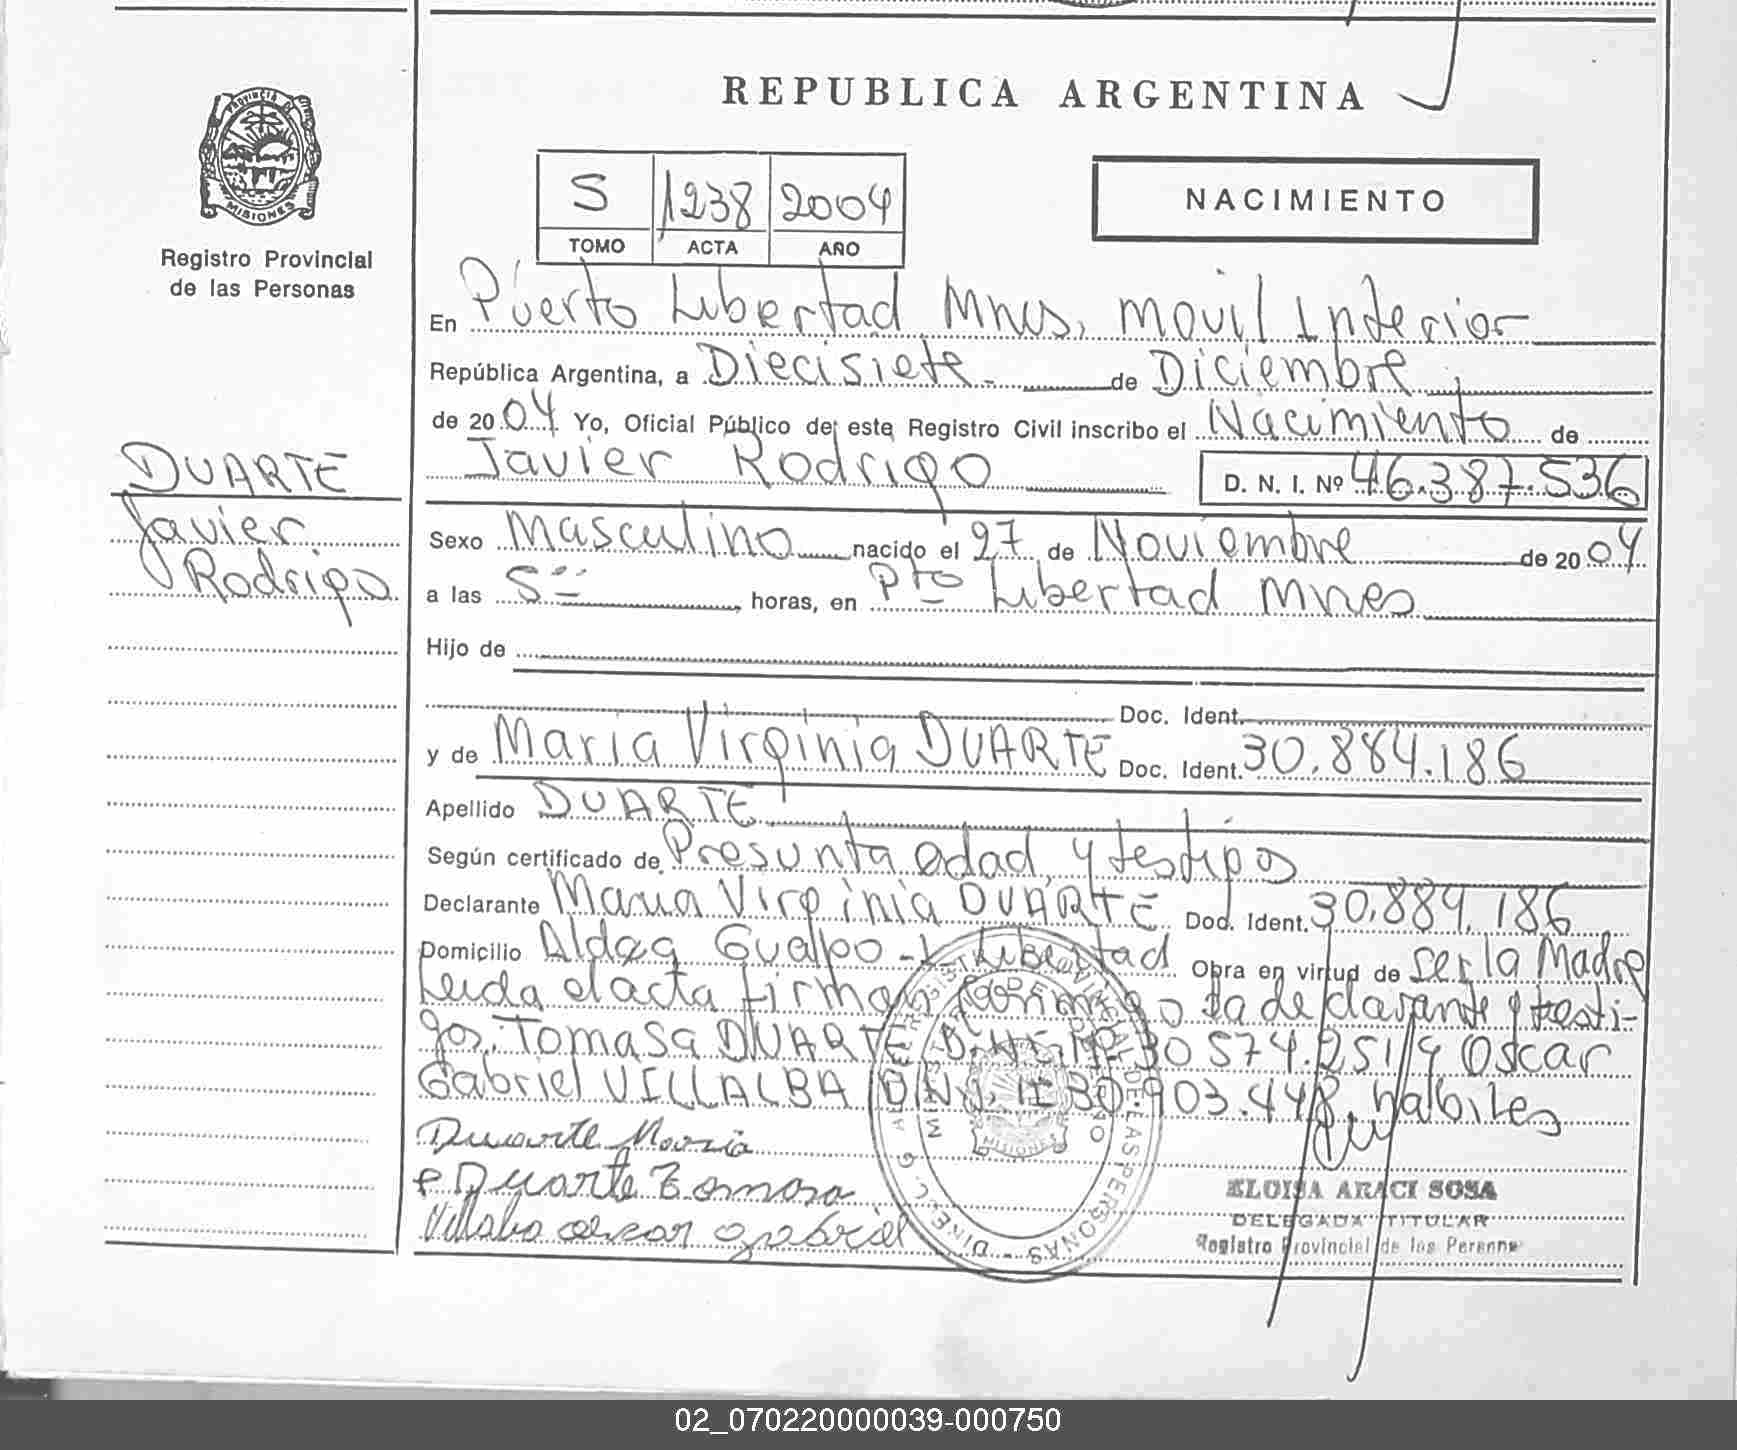 PROVINCIA DE
MISIONES
Registro Provincial
de las Personas
DUARTE
Javier
Rodrigo
REPUBLICA ARGENTINA
S 1238 2004
TOMO ACTA AÑO
NACIMIENTO
En Puerto Libertad Mnes, Movil Interior
República Argentina, a Diecisiete de Diciembre
de 2004 Yo, Oficial Público de este Registro Civil inscribo el Nacimiento de
Javier Rodrigo D. N. I. Nº 46.387.536
Sexo Masculino nacido el 27 de Noviembre de 2004
a las 5 horas, en Pto Libertad Mnes
Hijo de
Doc. Ident.
y de Maria Virginia DUARTE Doc. Ident. 30.884.186
Apellido DUARTE
Según certificado de Presunta edad y testigos
Declarante Maria Virginia DUARTE Doc. Ident. 30.884.186
Domicilio Aldea Libertad Obra en virtud de ser la Madre
Leida el acta firman conmigo la declarante y testi-
gos: Tomasa DUARTE D.N.I. Nº 30 574.251 y Oscar
Gabriel VILLALBA D.N.I. Nº 30.903.448, habiles
Duarte Maria
Duarte Tomasa
Villalba oscar gabriel
ELOISA ARACI SOSA
DELEGADA TITULAR
Registro Provincial de las Personas
02_070220000039-000750